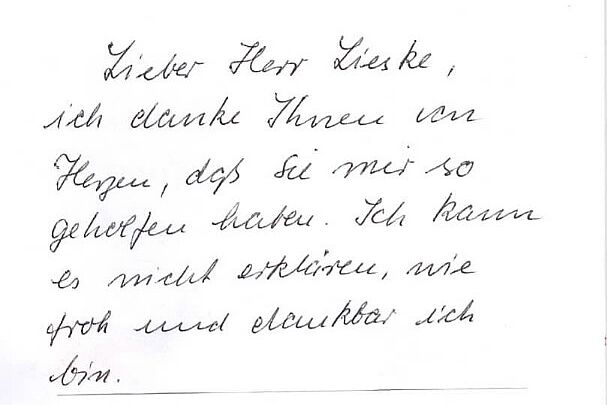 Lieber Herr Lieske,
ich danke Ihnen von
Herzen, daß Sie mir so
geholfen haben. Ich kann
es nicht erklären, wie
froh und dankbar ich
bin.